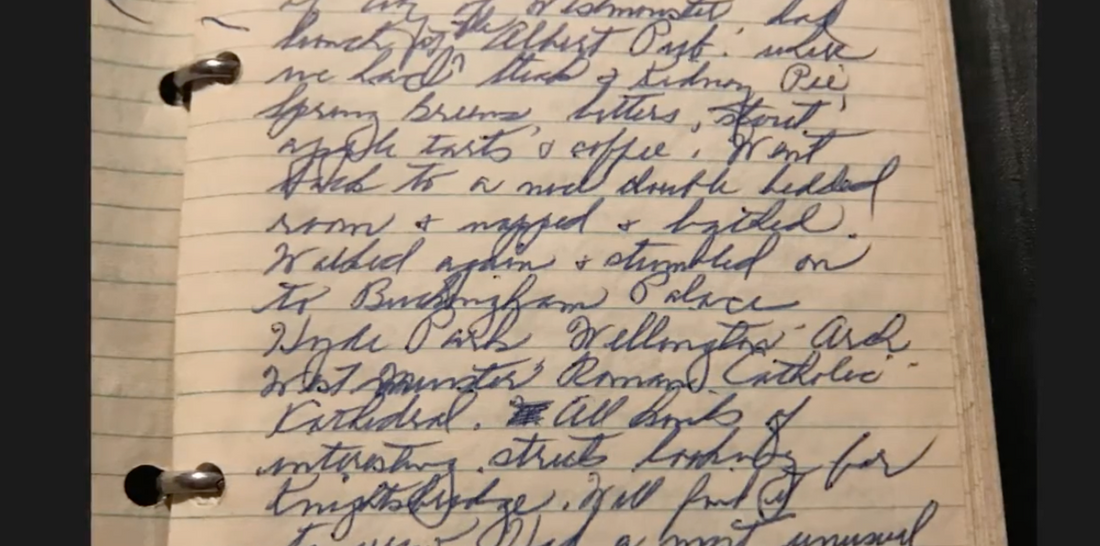 City of Westminster had
lunch @ the "Albert Pub" where
we had Steak & Kidney Pie,
Spring Greens, bitters, stout,
apple tarts & coffee. Went
back to a nice double bedded
room & napped & bathed.
Walked again & stumbled on
to Buckingham Palace
Hyde Park Wellington Arch
Westminster Roman Catholic
Kathedral. All kinds of
interesting streets looking for
Knightsbridge. Will find it
Had a most unusual